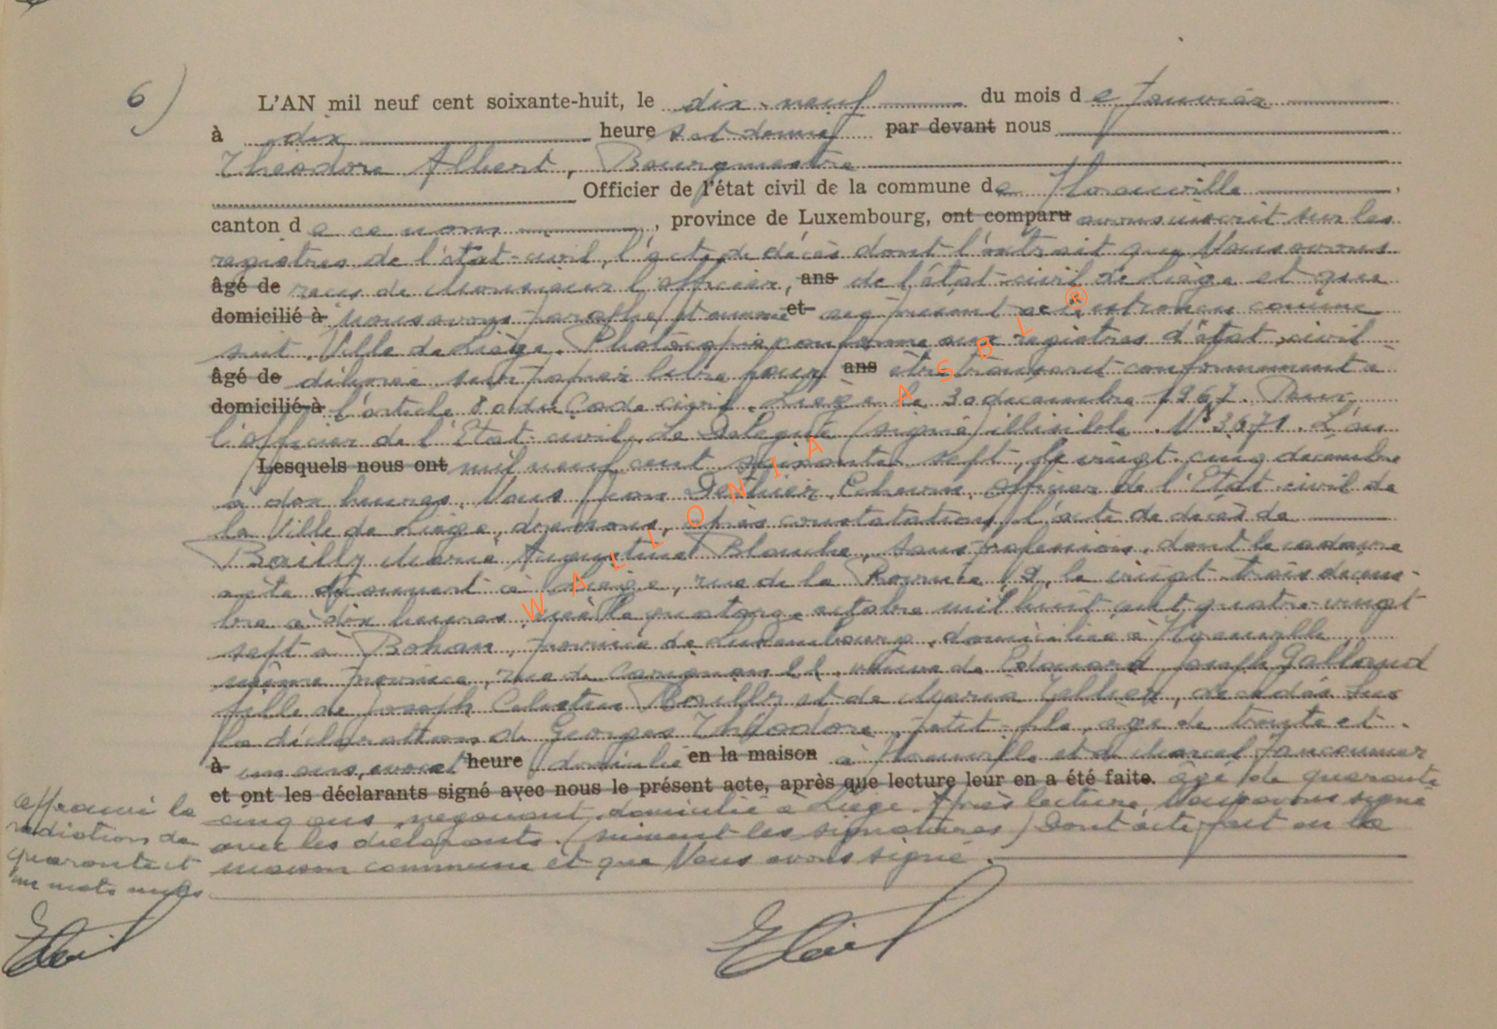 6)
L'AN mil neuf cent soixante-huit, le dix-neuf du mois de Janvier
à dix heures et demie par devant nous
Théodore Albert, Bourgmestre
Officier de l'état civil de la commune de Florenville,
canton de ce nom, province de Luxembourg, ont comparu avons inscrit sur les
registres de l'état-civil, l'acte de décès dont l'extrait que Nous avons
âgé de reçu de Monsieur l'officier, ans de l'état-civil de Liège et que
domicilié à Nous avons paraphé et annexé et au présent acte, est conçu comme
suit. Ville de Liège. Photocopie conforme aux registres d'état civil
âgé de délivrée sur papier libre pour ans être transcrit conformément à
domicilié à l'article 80 du Code civil. Liège le 30 décembre 1967. Pour
l'officier de l'Etat-civil, Le Délégué (signé) illisible. N° 3671. L'an
Lesquels nous ont mil neuf cent soixante sept, le vingt-cinq décembre
à dix heures, Nous Jean Officier de l'Etat civil de
la Ville de Liège, dressons, après constatation, l'acte de décès de
Bailly Marie Augustine Blanche, sans profession, dont le cadavre
a été découvert à Liège, rue de la 19, le vingt trois décem-
bre à dix heures, née le quatorze octobre mil huit cent quatre-vingt
sept à Bohan, province de Luxembourg, domiciliée à Florenville,
même province, rue de Carignan 21, veuve de Edouard Joseph
fille de Joseph Célestin Bailly et de Maria décédés. Sur
la déclaration de Georges Théodore, petit-fils, âgé de trente et
à un ans, avocat heure domicilié en la maison à Florenville et de Marcel
et ont les déclarants signé avec nous le présent acte, après que lecture leur en a été faite. âgé de quarante
cinq ans, domicilié à Liège. Après lecture, Nous avons signé
avec les déclarants. (suivent les signatures) Dont acte fait en la
maison commune et que Nous avons signé.
Approuvé la
radiation de
quarante et
un mots nuls